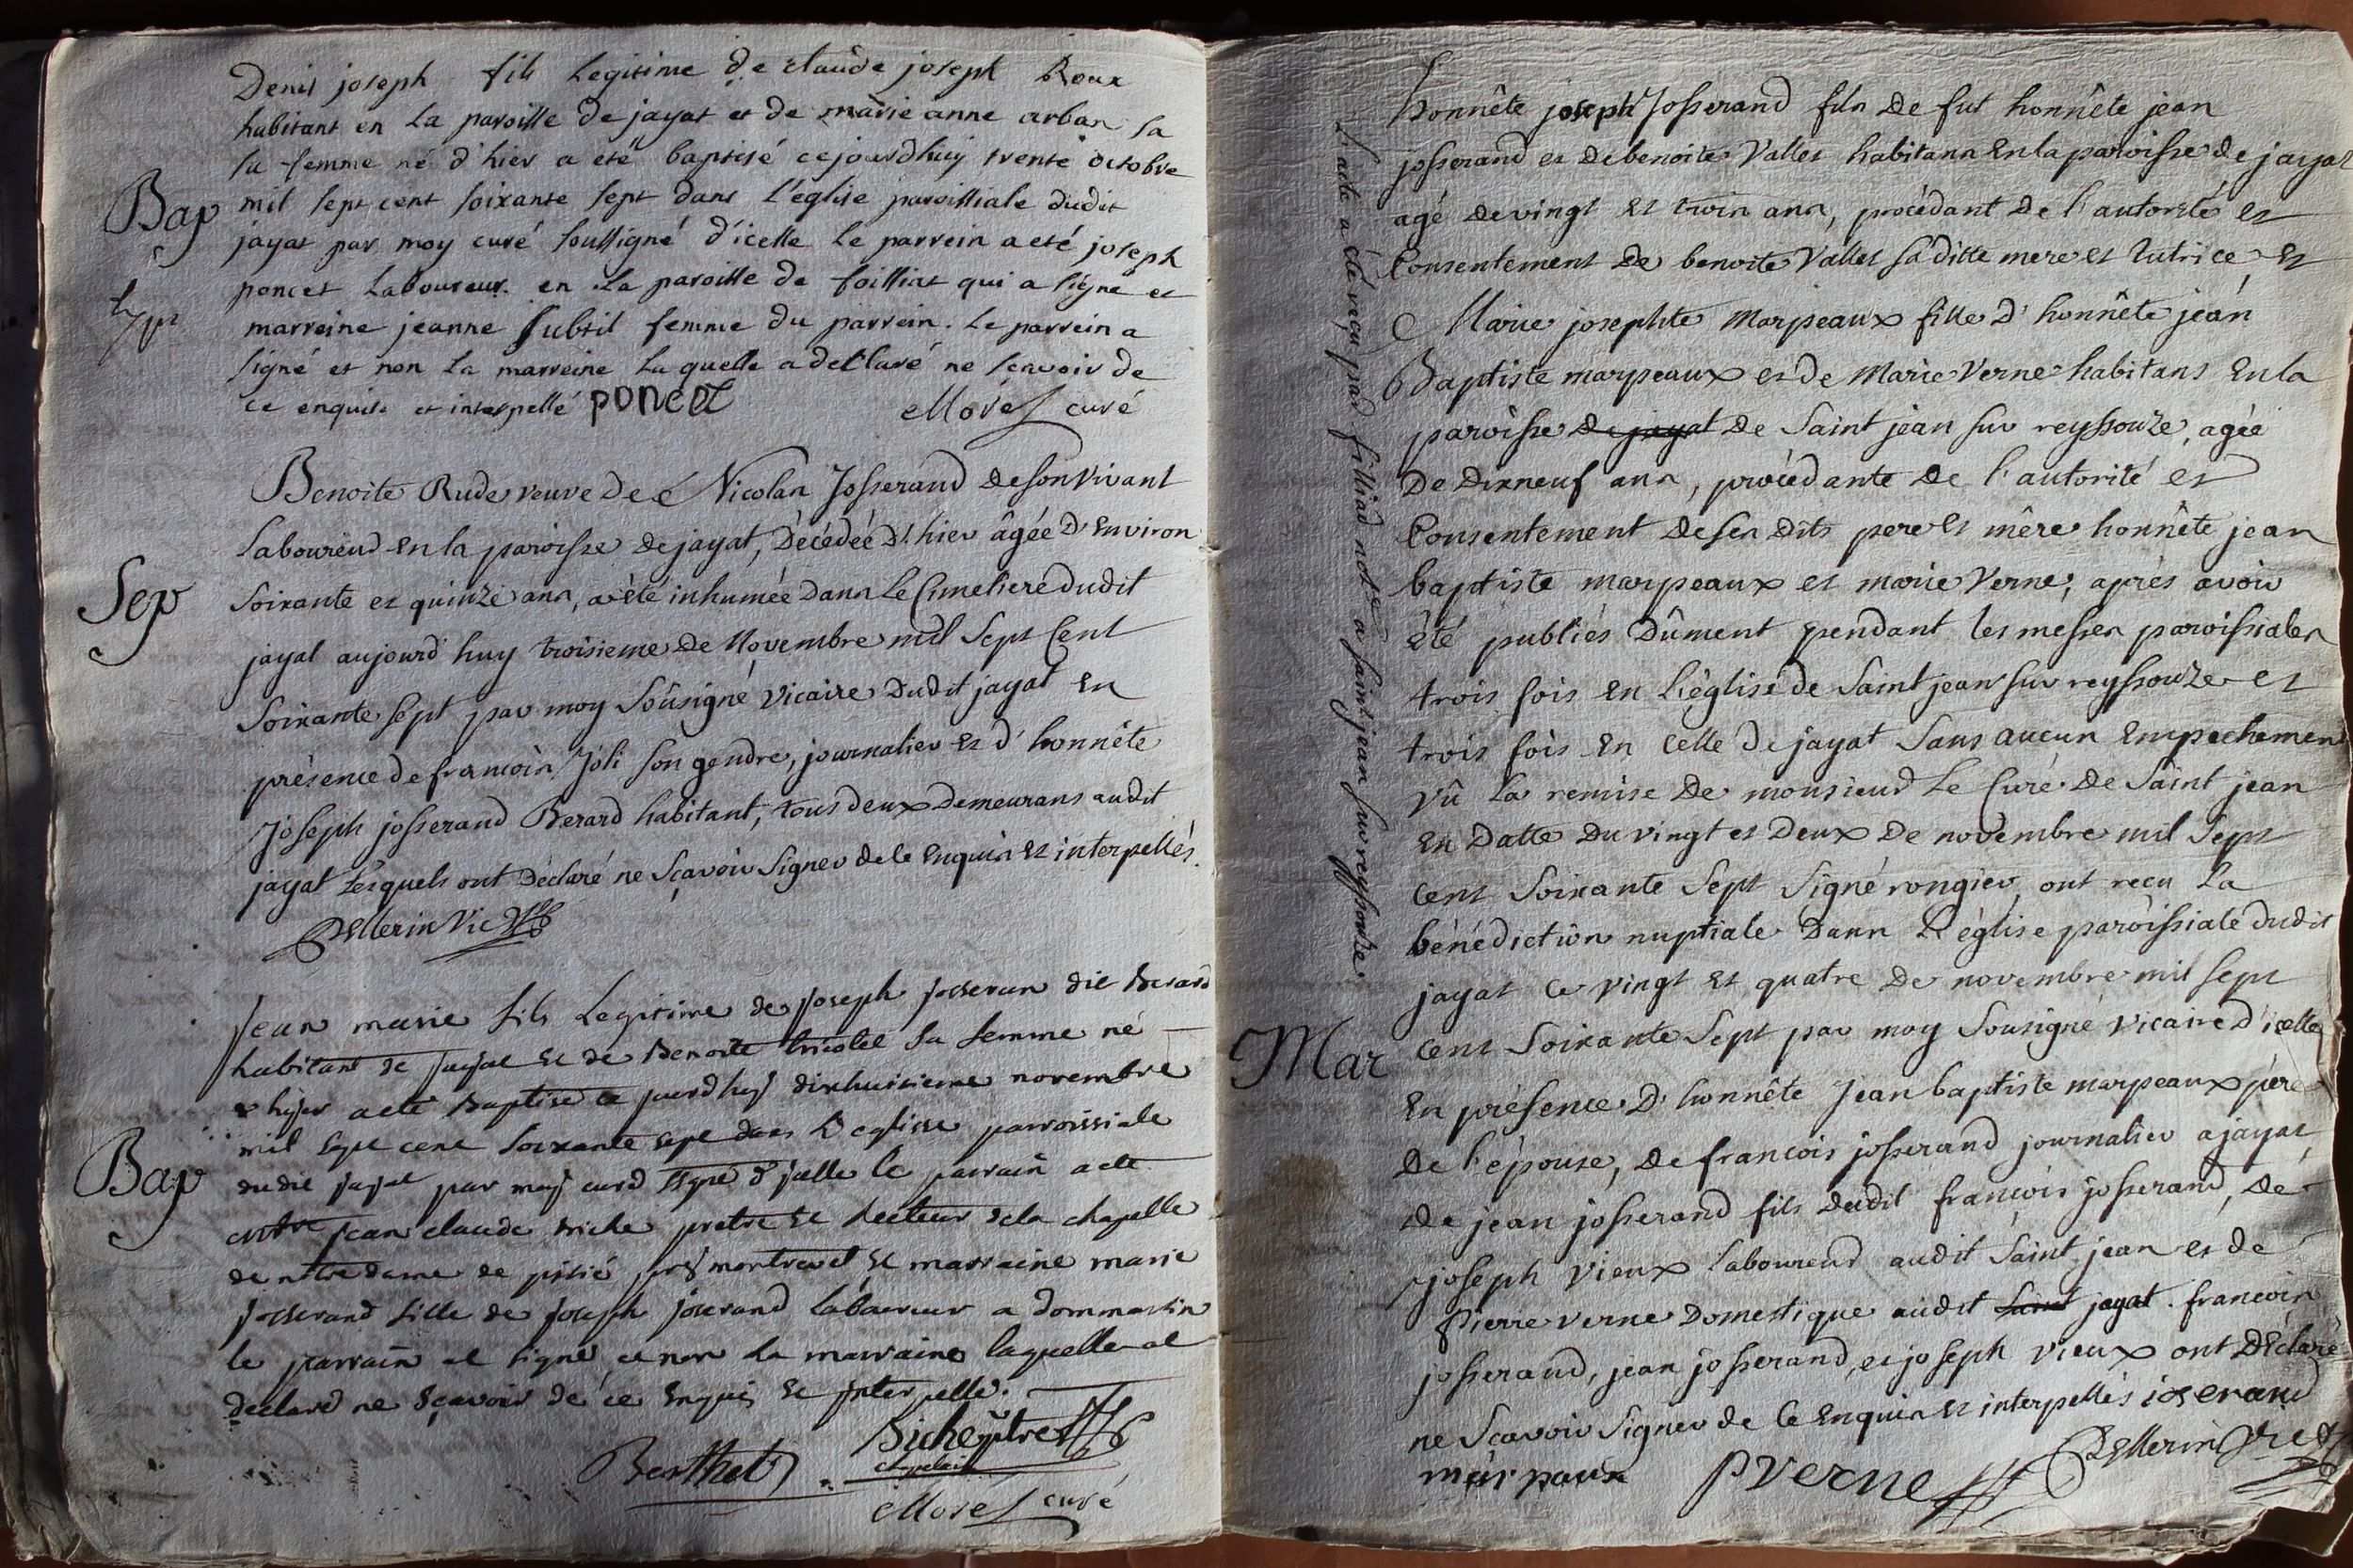 Denis joseph fils Legitime de claude joseph Roux
habitant en La paroisse de jayat et de marie anne arban sa
sa femme né d'hier a eté baptisé cejourdhuy trente octobre
Bap
mil sept cent soixante sept dans l'eglise paroissiale dudit
jayat par moy curé soussigné d'icelle Le parrein a eté joseph
poncet Laboureur en La paroisse de foissiat qui a signé et
marreine jeanne Subtil femme du parrein. Le parrein a
signé et non La marreine La quelle a declaré ne scavoir de
ce enquise et interpellé poncet Morel curé
Benoite Rude veuve de Nicolas Josserand de son vivant
Laboureur en la paroisse de jayat, Décédée d'hier âgée d'environ
Sep
soixante et quinze ans, a été inhumée dans Le Cimetiere dudit
jayat aujourd'huy troisieme de Novembre mil Sept Cent
Soixante sept par moy Sousigné vicaire Dudit jayat en
présence de francois Joli son gendre, journalier et d'honnête
Joseph josserand Berard habitant, tous deux Demeurans audit
jayat Lesquels ont Déclaré ne Sçavoir Signer de ce enquis et interpellés.
Pellerin Vic
Jean marie fils Legitime de joseph josseran dit Berard
habitant de jayat et de Benoite tricolet sa femme né
d hyer a ete Baptisé ce jourdhuy dixhuitieme novembre
mil sept cent soixante sept dans L'eglise parroissiale
Bap
dudit jayat par moy curé signé d jcelle le parrain a ete
jean claude Miche pretre et Recteur de la chapelle
de notre dame de pitié pres montrevel et marraine marie
josserand fille de joseph joserand Laboureur a dommartin
le parrain at signé et non La marraine laquelle at
declaré ne sçavoir de ce enquis et jnterpellé.
Berthet
chapelain
Morel curé
L'acte a été reçu par filliod notre a saint jean sur reyssouze
honnête joseph Josserand fils de fut honnête jean
josserand et de benoite Vallet habitans En la paroisse de jayat
agé de vingt et trois ans, procédant de l'autorité et
Consentement de benoite Vallet sa ditte mere et tutrice et
Marie josephte Marpeaux fille d'honnête jean
Baptiste marpeaux et de Marie Verne habitans En la
paroisse de jayat de Saint jean sur reyssouze, agée
De dixneuf ans, procédante de l'autorité et
Consentement de ses dits pere et mêre honnête jean
baptiste marpeaux et marie Verne, après avoir
été publiés Dûment pendant les messes paroissiales
trois fois en L'église de Saint jean sur reyssouze et
trois fois en celle de jayat Sans aucun Empechement
vû La remise de monsieur Le Curé de Saint jean
en Datte du vingt et Deux de novembre mil Sept
cent Soixante Sept signé rongier, ont reçu La
bénédiction nuptiale Dans L'église paroissiale dudit
jayat ce vingt et quatre de novembre mil sept
Mar
cent Soixante Sept par moy Sousigné vicaire d'icelle
En présence d'honnête Jean baptiste marpeaux père
de l'épouse, de francois josserand journalier a jayat
de jean josserand fils dudit francois josserand, de
joseph Vieux Laboureur audit Saint jean et de
Pierre verne Domestique audit Saint jayat. francois
josserand, jean josserand, et joseph vieux ont Déclaré
ne Sçavoir Signer de Ce Enquis et interpellés ioserand
marpaux P verne Pellerin vic